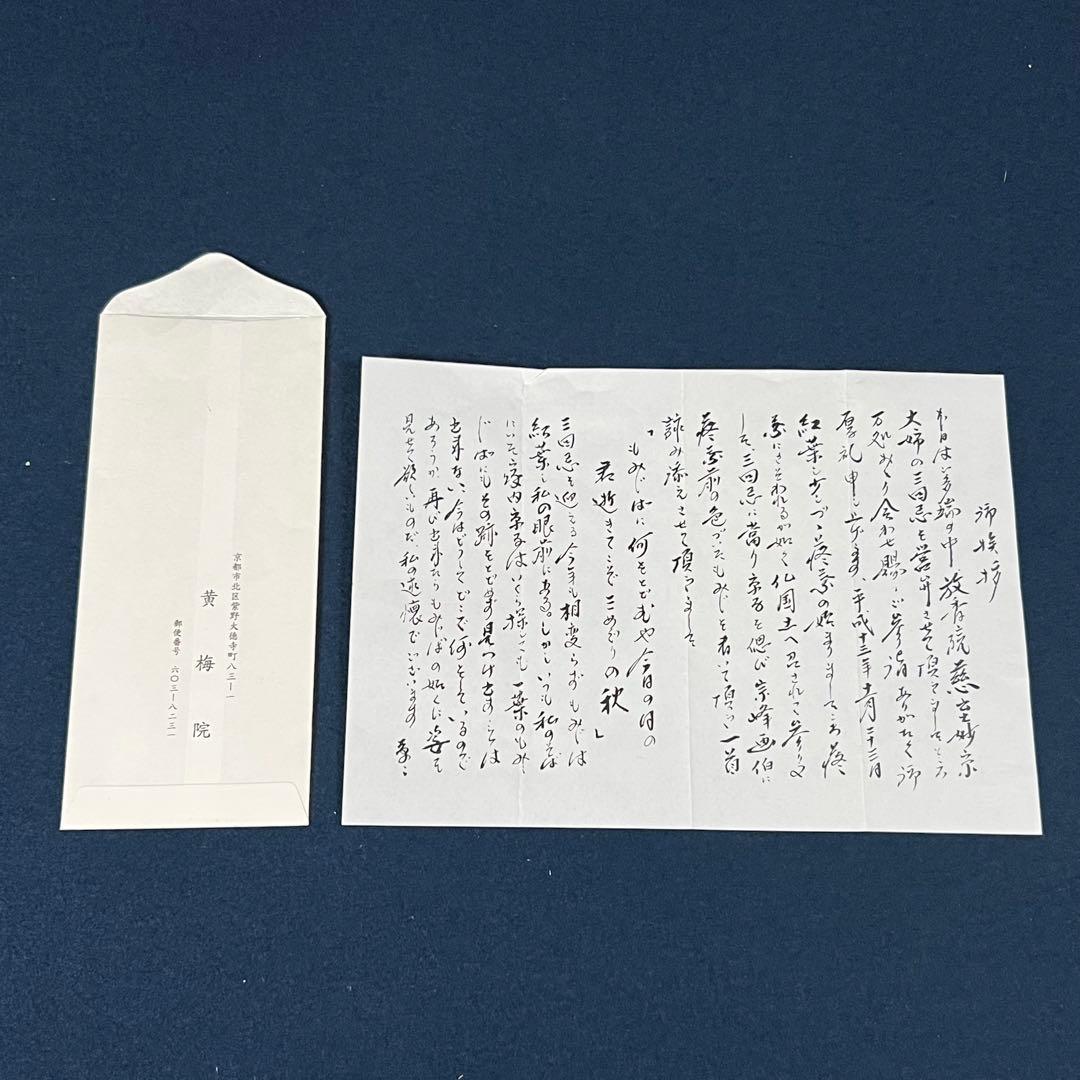 京都市北区紫野大徳寺町八三ー一
黄梅院
郵便番号 六〇三ー八二三一
御挨拶
本日は御多端の中、放香院慈室妙宗
大姉の三回忌を営弁させて頂きましたところ
万処みくり合わせ賜わりご参詣ありがたく御
厚礼申し上げます、平成十三年十一月二十三日
紅葉も少しづつ落葉の始まりまして、この落
葉にさそわれるが如く仏国土へ召されて参りま
して、三回忌に當り宗子を偲び宗峰画伯に
落葉前の色づいたもみじを書いて頂き一首
詠み添えさせて頂きまして
「もみじばに何をとどむや今日の日の
君逝きてここでこめぐりの秋」
三回忌を迎える今年も相変らずもみじは
紅葉し私の眼前にある。しかしいつも私のそば
にいた寺内京子はいくら探しても一葉のもみ
じばにもその跡をとどめず見つけ出すことは
出来ない、今はどうしてどこで何をしているので
あろうか再び出来たらもみじばの如くに姿を
見せて欲しいものだ私の述懐でございます